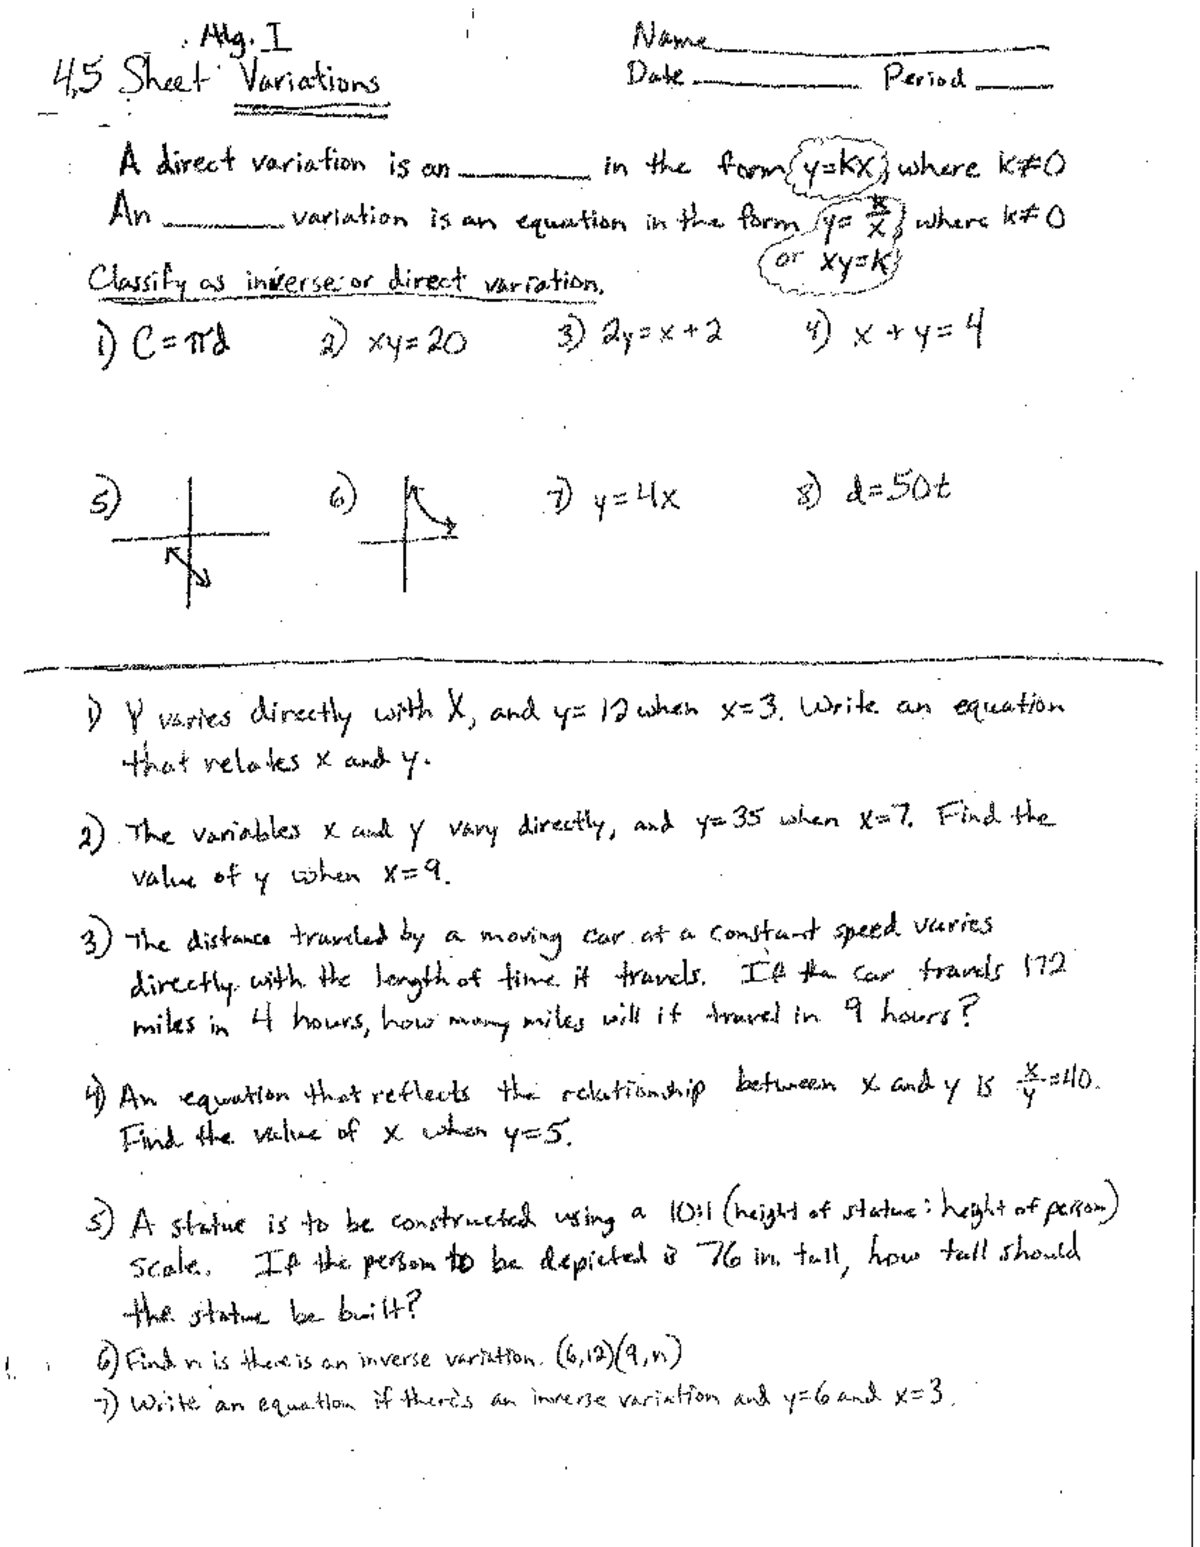 Alg. I
Name
4.5 Sheet Variations
Date Period
A direct variation is an ______ in the form y=kx, where k≠0
An ______ variation is an equation in the form y= k/x, where k≠0
or xy=k
Classify as inverse or direct variation.
1) C=πd 2) xy=20 3) 2y=x+2 4) x+y=4
5) 6) 7) y=4x 8) d=50t
1) Y varies directly with X, and y=12 when x=3. Write an equation
that relates x and y.
2) The variables x and y vary directly, and y=35 when x=7. Find the
value of y when x=9.
3) The distance traveled by a moving car at a constant speed varies
directly with the length of time it travels. If the car travels 172
miles in 4 hours, how many miles will it travel in 9 hours?
4) An equation that reflects the relationship between x and y is x/y=40.
Find the value of x when y=5.
5) A statue is to be constructed using a 10:1 (height of statue : height of person)
scale. If the person to be depicted is 76 in. tall, how tall should
the statue be built?
6) Find n is there is an inverse variation. (6,12)(9,n)
7) Write an equation if there's an inverse variation and y=6 and x=3.